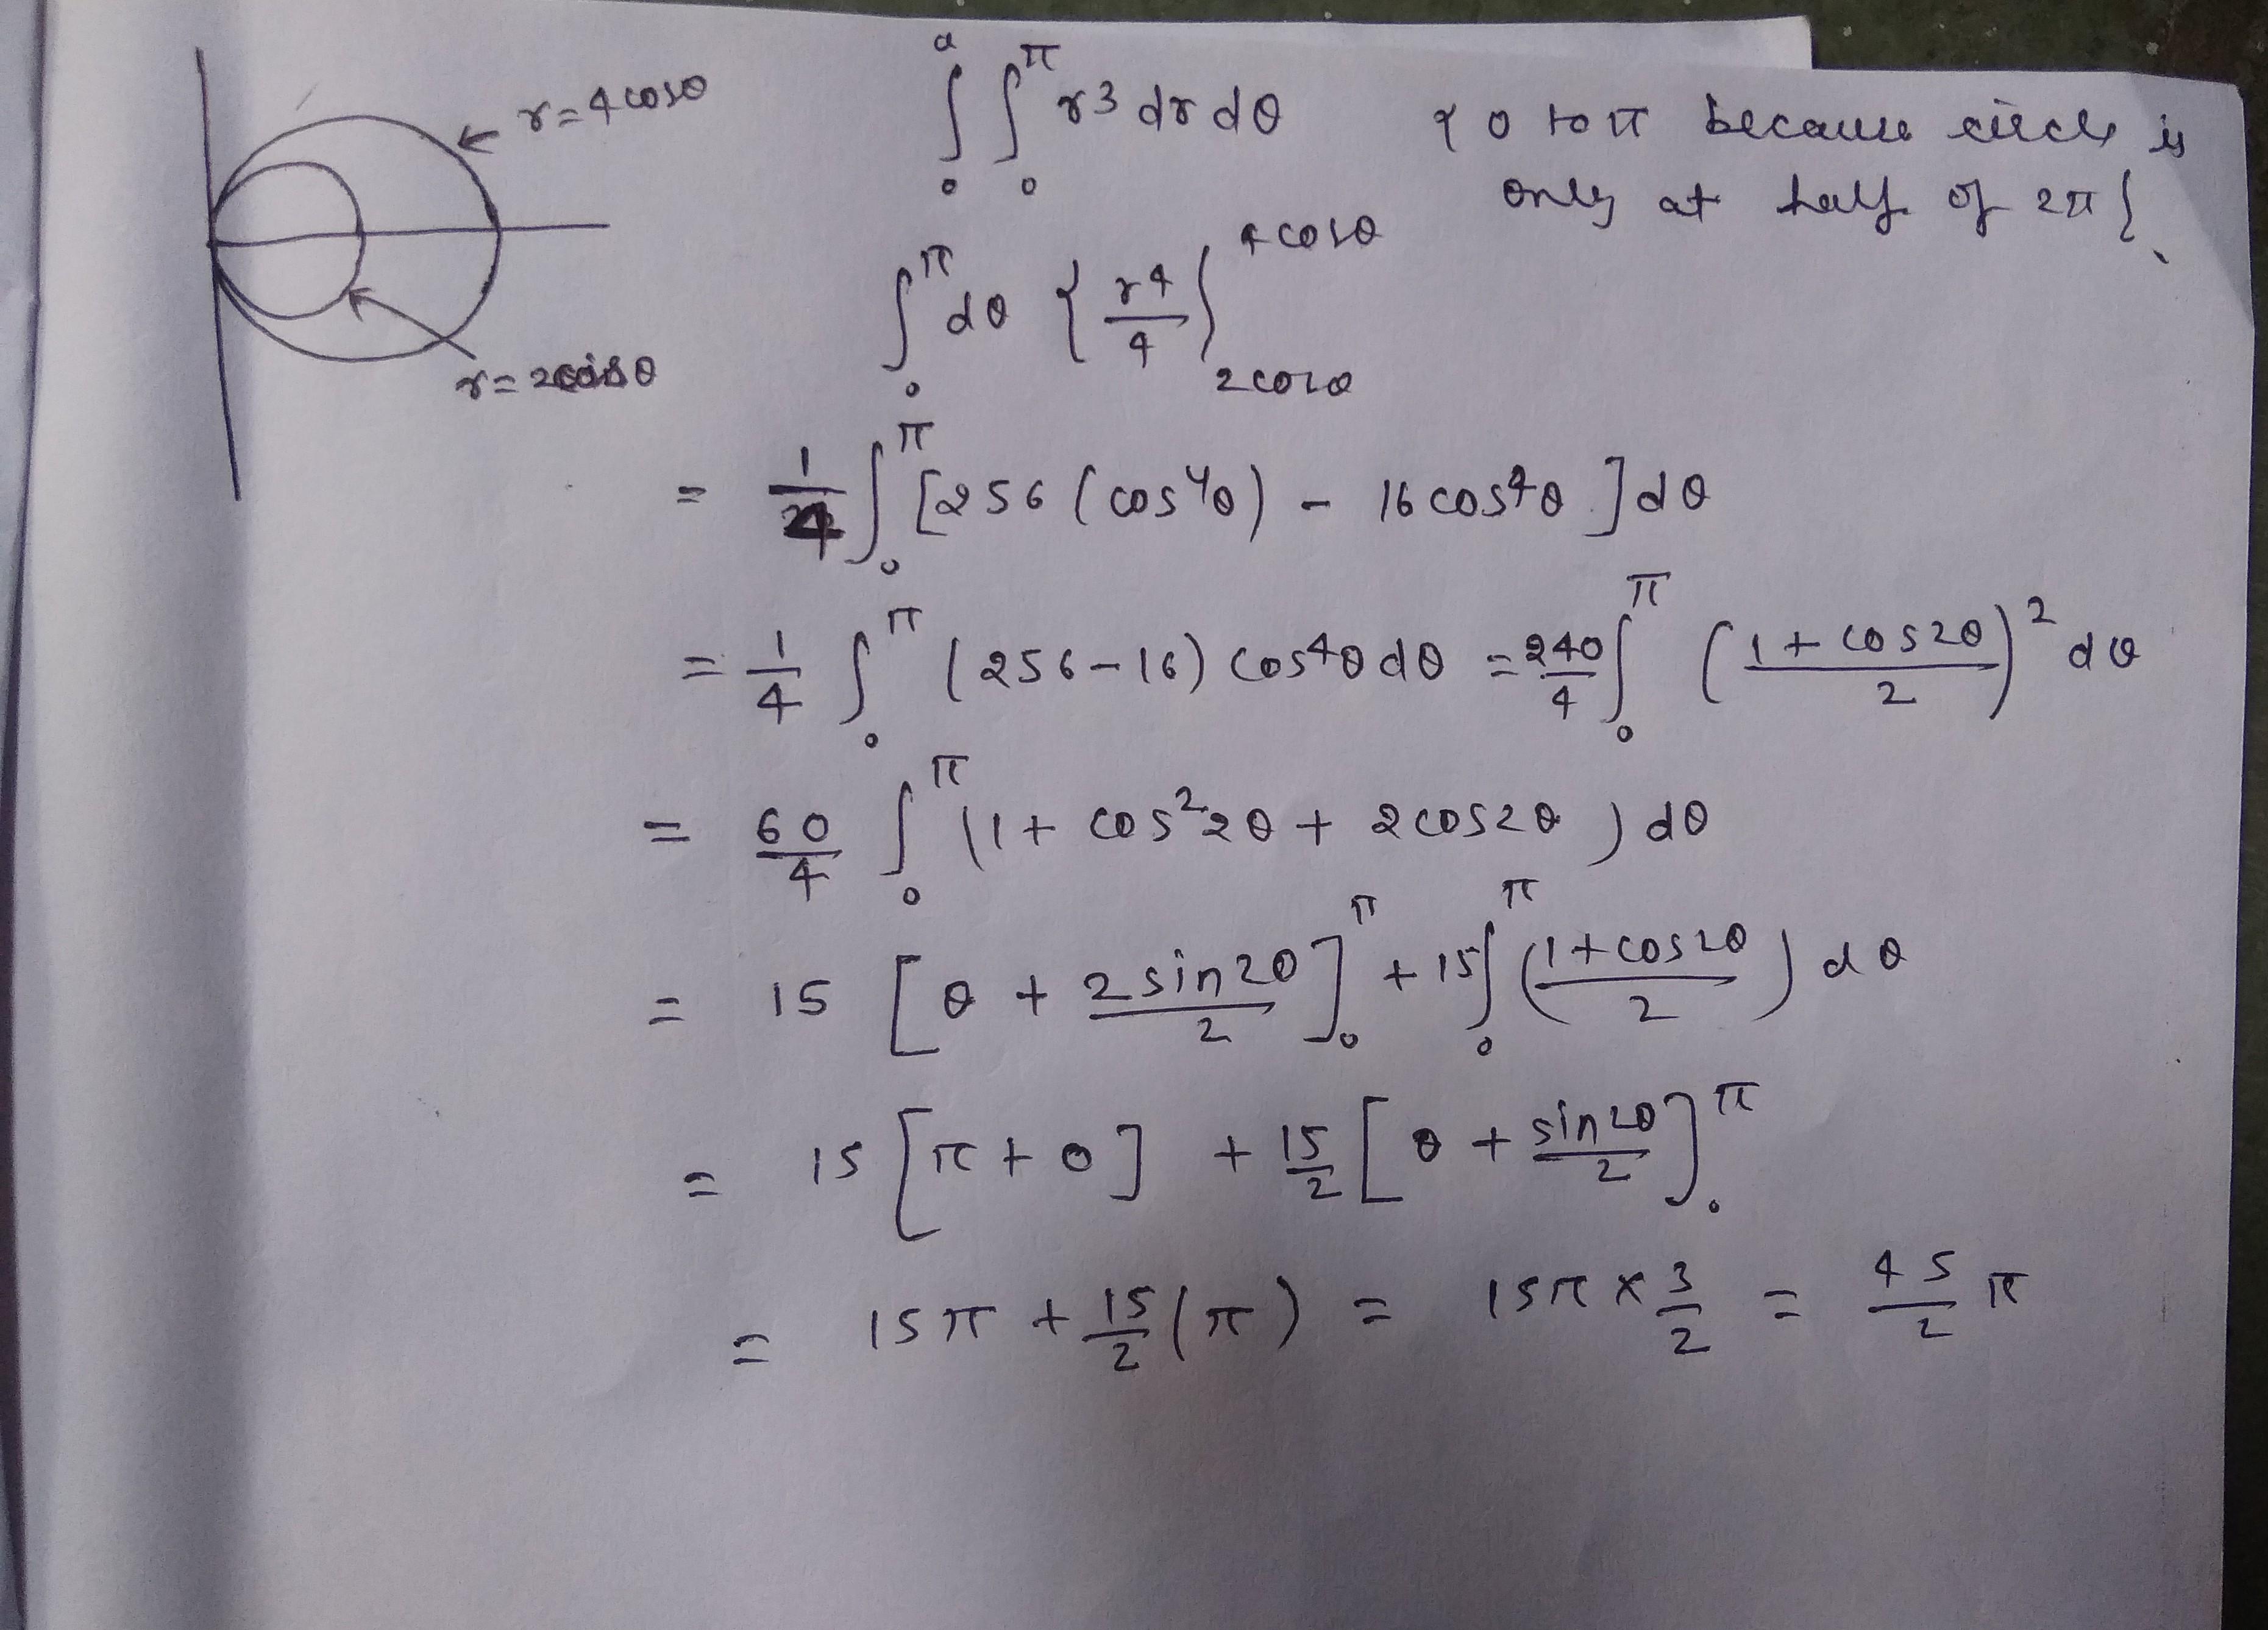 r = 4 cosθ
r = 2cosθ
∫₀ᵃ ∫₀^π r³ dr dθ { 0 to π because circle is
only at half of 2π }
∫₀^π dθ { r⁴/4 }_{2cosθ}^{4cosθ}
= 1/4 ∫₀^π [256 (cos⁴θ) - 16 cos⁴θ ] dθ
= 1/4 ∫₀^π (256-16) cos⁴θ dθ = 240/4 ∫₀^π ((1 + cos2θ)/2)² dθ
= 60/4 ∫₀^π (1 + cos²2θ + 2cos2θ) dθ
= 15 [θ + 2 sin2θ/2]₀^π + 15∫₀^π ((1+cos2θ)/2) dθ
= 15 [π + 0] + 15/2 [θ + sin2θ/2]₀^π
= 15π + 15/2 (π) = 15π × 3/2 = 45/2 π